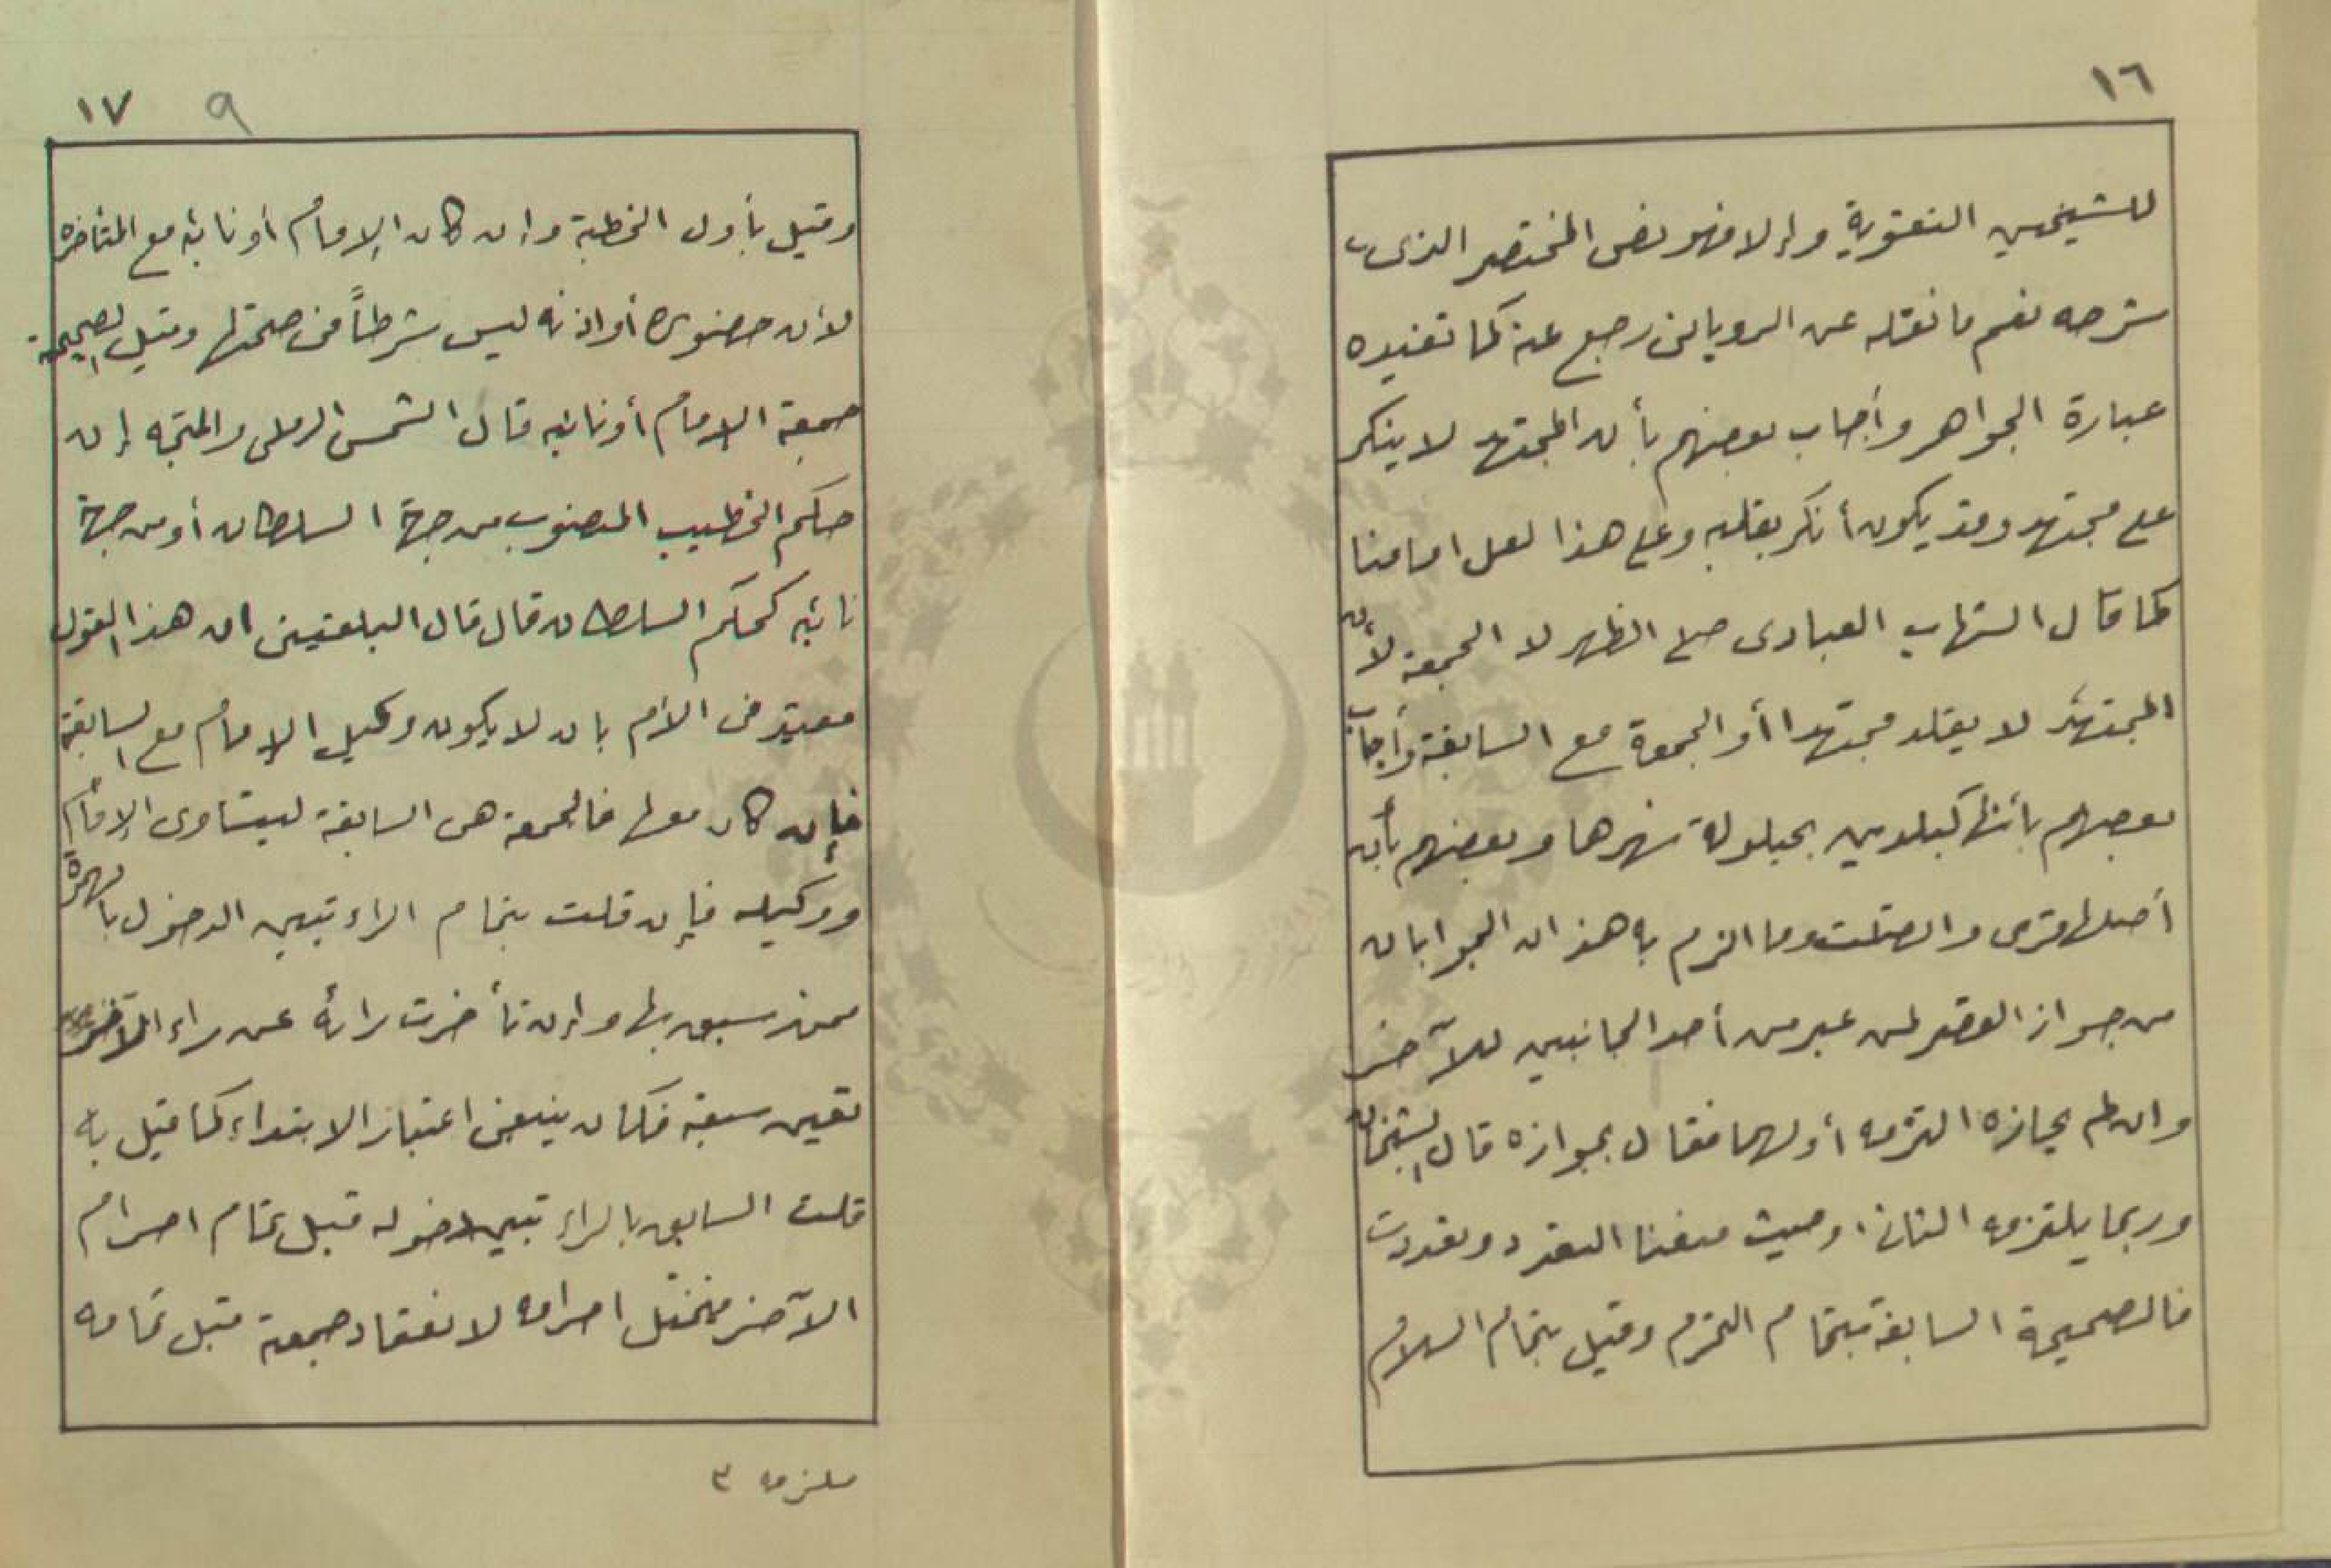 ١٦
للشيخين التقوية وإلا فهو نص المختصر الذى
شرحه نعم ما نقله عن الرويانى رجع عنه كما تفيده
عبارة الجواهر وأجاب بعضهم بأن المجتهد لا ينكر
على مجتهد وقد يكون أنكر بقلبه وعلى هذا لعل امامنا
كما قال الشهاب العبادى صلى الظهر لا الجمعة لأن
المجتهد لا يقلد مجتهدا أو الجمعة مع السابقة وأجاب
بعضهم بأنها كبلدين بحيلولة نهرها وبعضهم بأن
أصلها قرى واتصلت وما الزم به هذان الجوابان
من جواز القصر لمن عبر من أحد الجانبين للآخر
وان لم يجاوزه التزمه أولهما فقال بجوازه قال الشيخان
وربما يلتزمه الثانى وحيث منعنا التعدد وتعددت
فالصحيحة السابقة بتمام التحرم وقيل بتمام السلام
١٧ ٩
وقيل بأول الخطبة وإن كان الإمام أو نائبه مع المتأخرة
لأن حضوره أو اذنه ليس شرطاً فى صحتها وقيل الصحيحة
جمعة الامام أو نائبه قال الشمس الرملى والمتجه إن
حكم الخطيب المنصوب من جهة السلطان أو من جهة
نائبه كحكم السلطان قال قال البلقينى ان هذا القول
معتبر فى الأم بان لا يكون وكيل الإمام مع السابقة
فإن كان معها فالجمعة هى السابقة ليتساوى الإمام
ووكيله فإن قلت بتمام الراء تبين الدخول بالهمزة
فمن سبق بها وإن تأخرت رائه عن راء الآخر
تعين سبقه فكان ينبغى اعتبار الابتداء كما قيل به
قلت السابق بالراء تبين دخوله قبل تمام احرام
الآخر فيختل احرامه لانعقاد جمعة قبل تمامه
ملزمه ٣